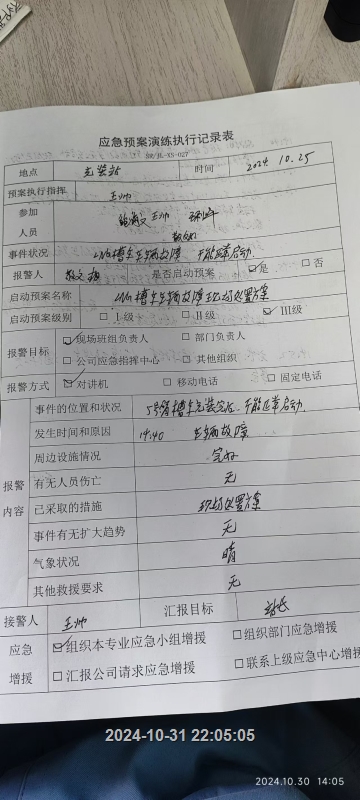 应急预案演练执行记录表
地点 充装站 时间 2024 10.25
预案执行指挥 王帅
参加人员 王帅
事件状况 LNG槽车车辆故障 不能正常启动
报警人 是否启动预案 ☑是 □否
启动预案名称 LNG槽车车辆故障现场处置方案
启动预案级别 □I级 □II级 ☑III级
报警目标 ☑现场班组负责人 □部门负责人
□公司应急指挥中心 □其他组织
报警方式 ☑对讲机 □移动电话 □固定电话
报警内容 事件的位置和状况 槽车充装完后,不能正常启动.
发生时间和原因 14:40 车辆故障
周边设施情况 完好
有无人员伤亡 无
已采取的措施 现场处置方案
事件有无扩大趋势 无
气象状况 晴
其他救援要求 无
接警人 王帅 汇报目标 站长
应急增援 ☑组织本专业应急小组增援 □组织部门应急增援
□汇报公司请求应急增援 □联系上级应急中心增援
2024-10-31 22:05:05
2024.10.30 14:05